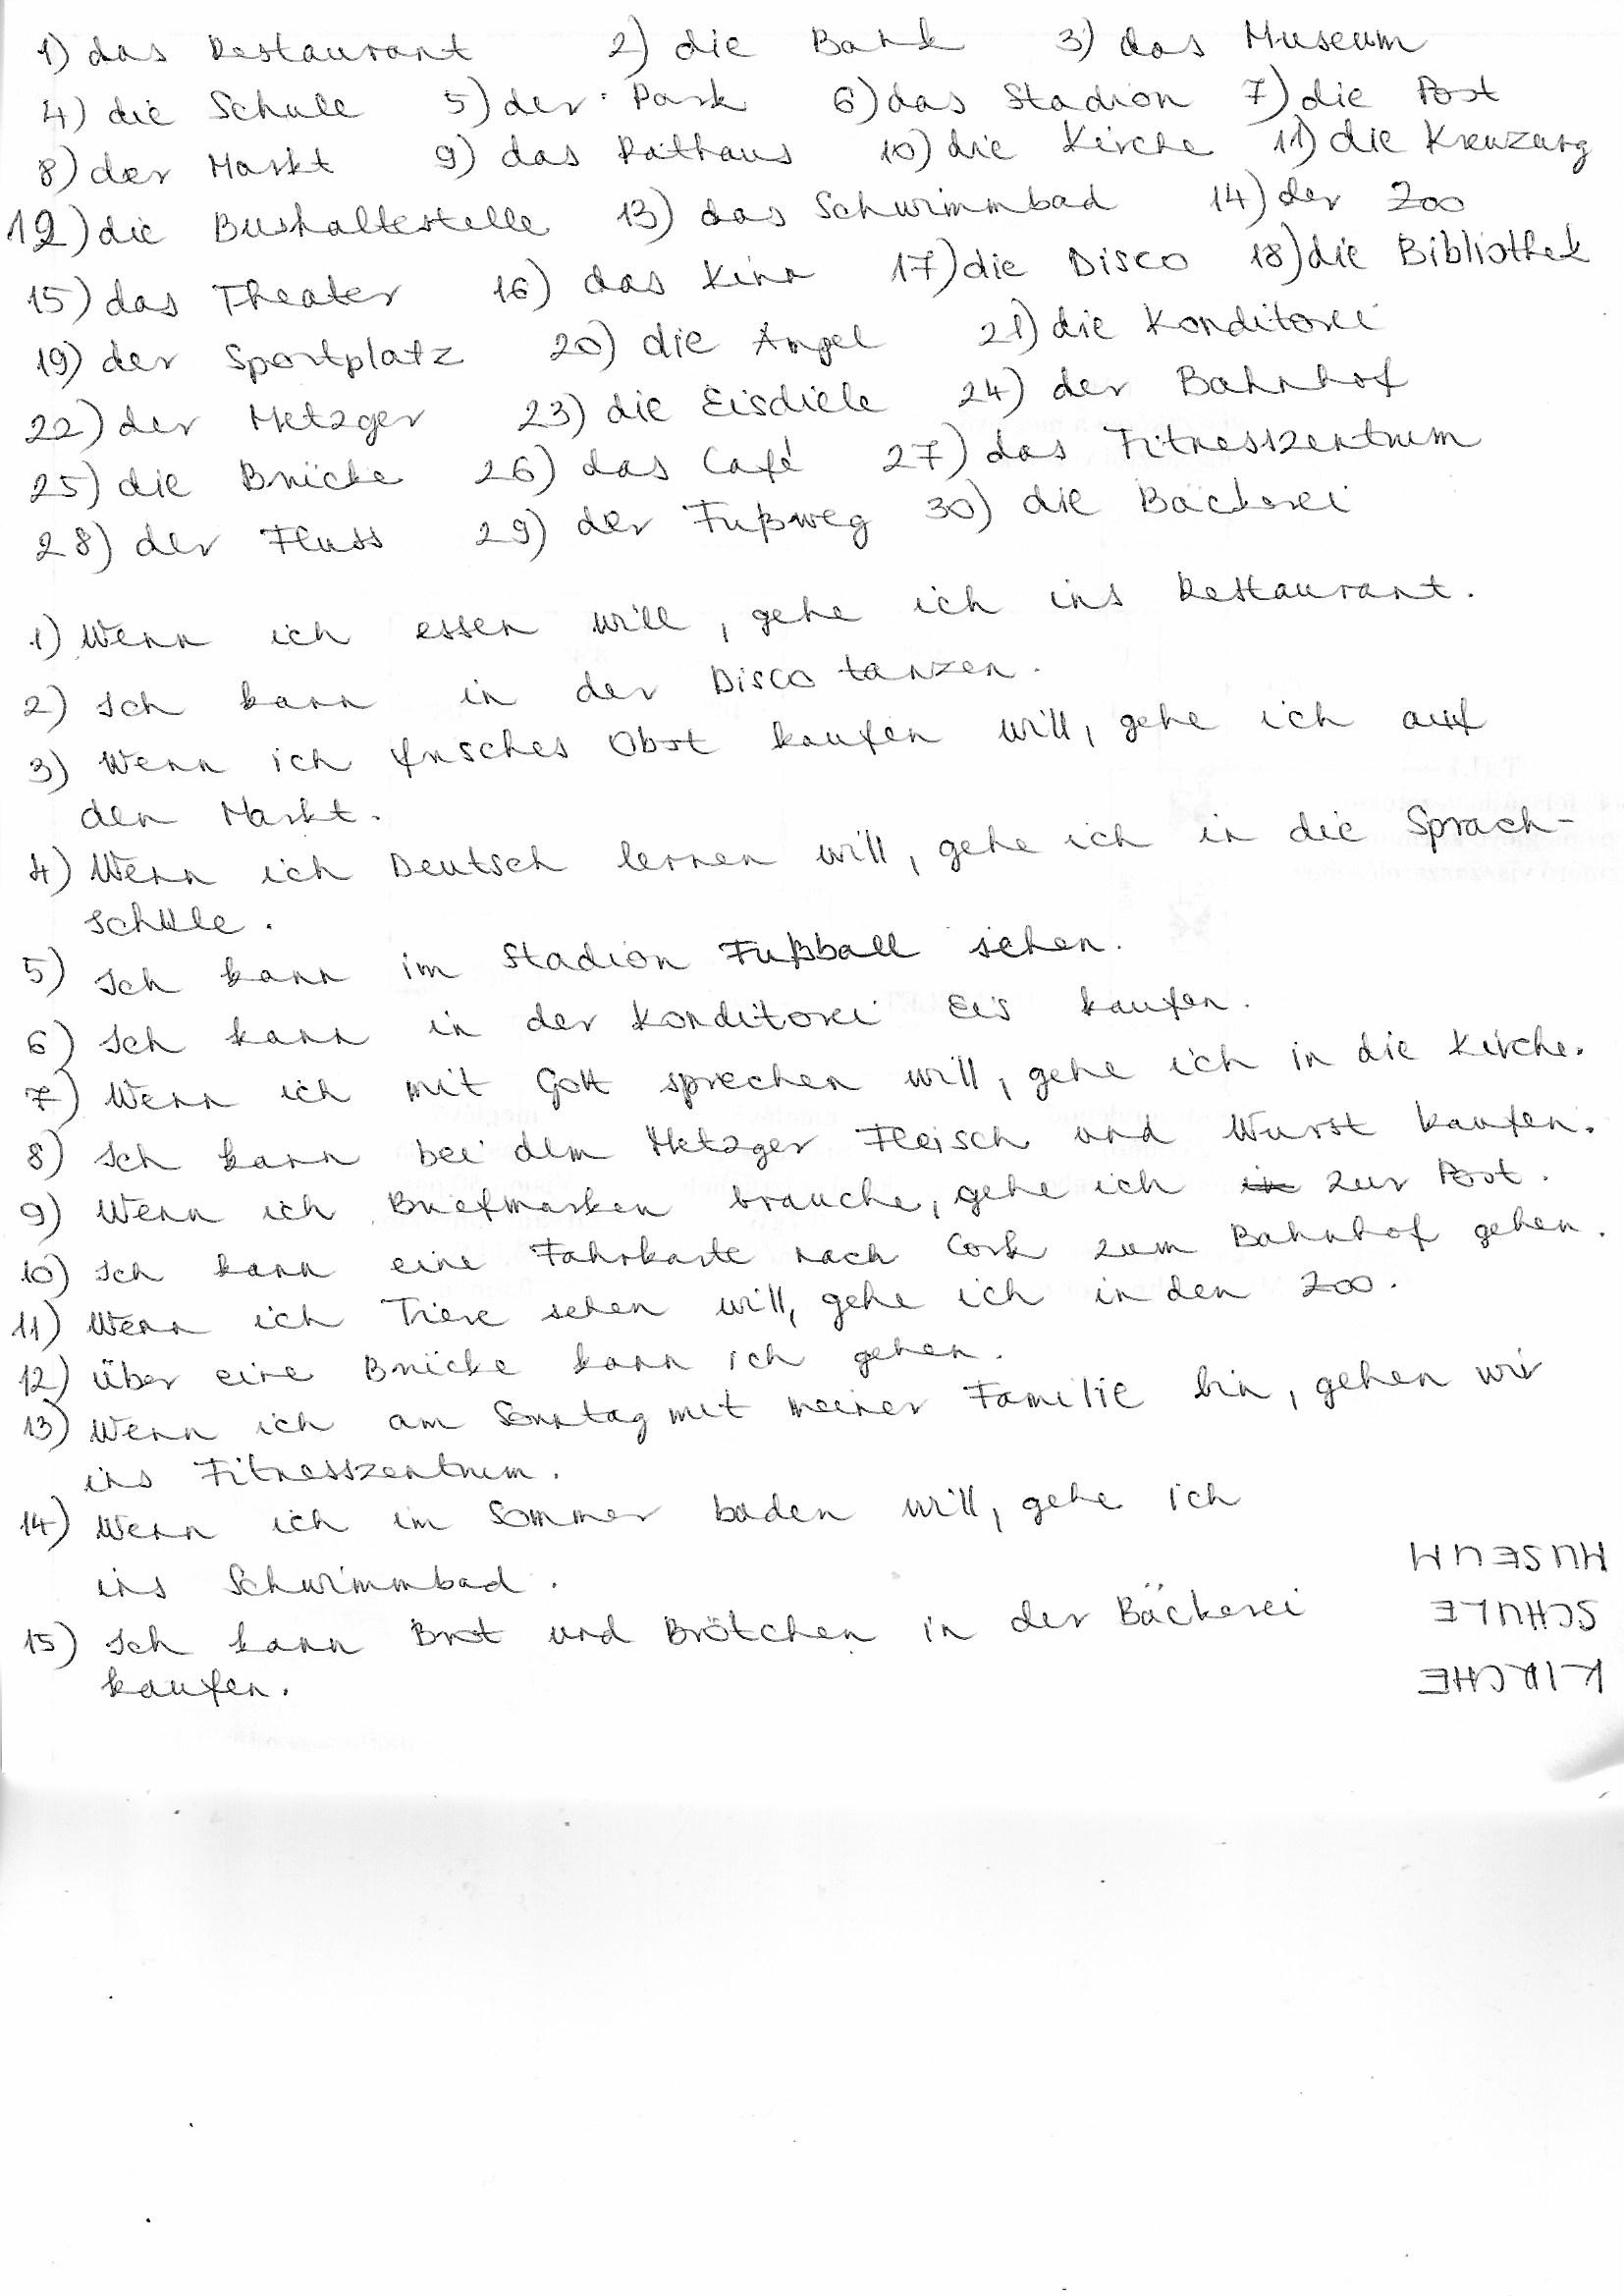 1) das Restaurant 2) die Bank 3) das Museum
4) die Schule 5) der Park 6) das Stadion 7) die Post
8) der Markt 9) das Rathaus 10) die Kirche 11) die Kreuzung
12) die Bushaltestelle 13) das Schwimmbad 14) der Zoo
15) das Theater 16) das Kino 17) die Disco 18) die Bibliothek
19) der Sportplatz 20) die Ampel 21) die Konditorei
22) der Metzger 23) die Eisdiele 24) der Bahnhof
25) die Brücke 26) das Café 27) das Fitnesszentrum
28) der Fluss 29) der Fußweg 30) die Bäckerei
1) Wenn ich essen will, gehe ich ins Restaurant.
2) Ich kann in der Disco tanzen.
3) Wenn ich frisches Obst kaufen will, gehe ich auf
den Markt.
4) Wenn ich Deutsch lernen will, gehe ich in die Sprach-
schule.
5) Ich kann im Stadion Fußball sehen.
6) Ich kann in der Konditorei Eis kaufen.
7) Wenn ich mit Gott sprechen will, gehe ich in die Kirche.
8) Ich kann bei dem Metzger Fleisch und Wurst kaufen.
9) Wenn ich Briefmarken brauche, gehe ich in zur Post.
10) Ich kann eine Fahrkarte nach Cork zum Bahnhof gehen.
11) Wenn ich Tiere sehen will, gehe ich in den Zoo.
12) Über eine Brücke kann ich gehen.
13) Wenn ich am Sonntag mit meiner Familie bin, gehen wir
ins Fitnesszentrum.
14) Wenn ich im Sommer baden will, gehe ich
ins Schwimmbad.
15) Ich kann Brot und Brötchen in der Bäckerei
kaufen.
KIRCHE
SCHULE
MUSEUM